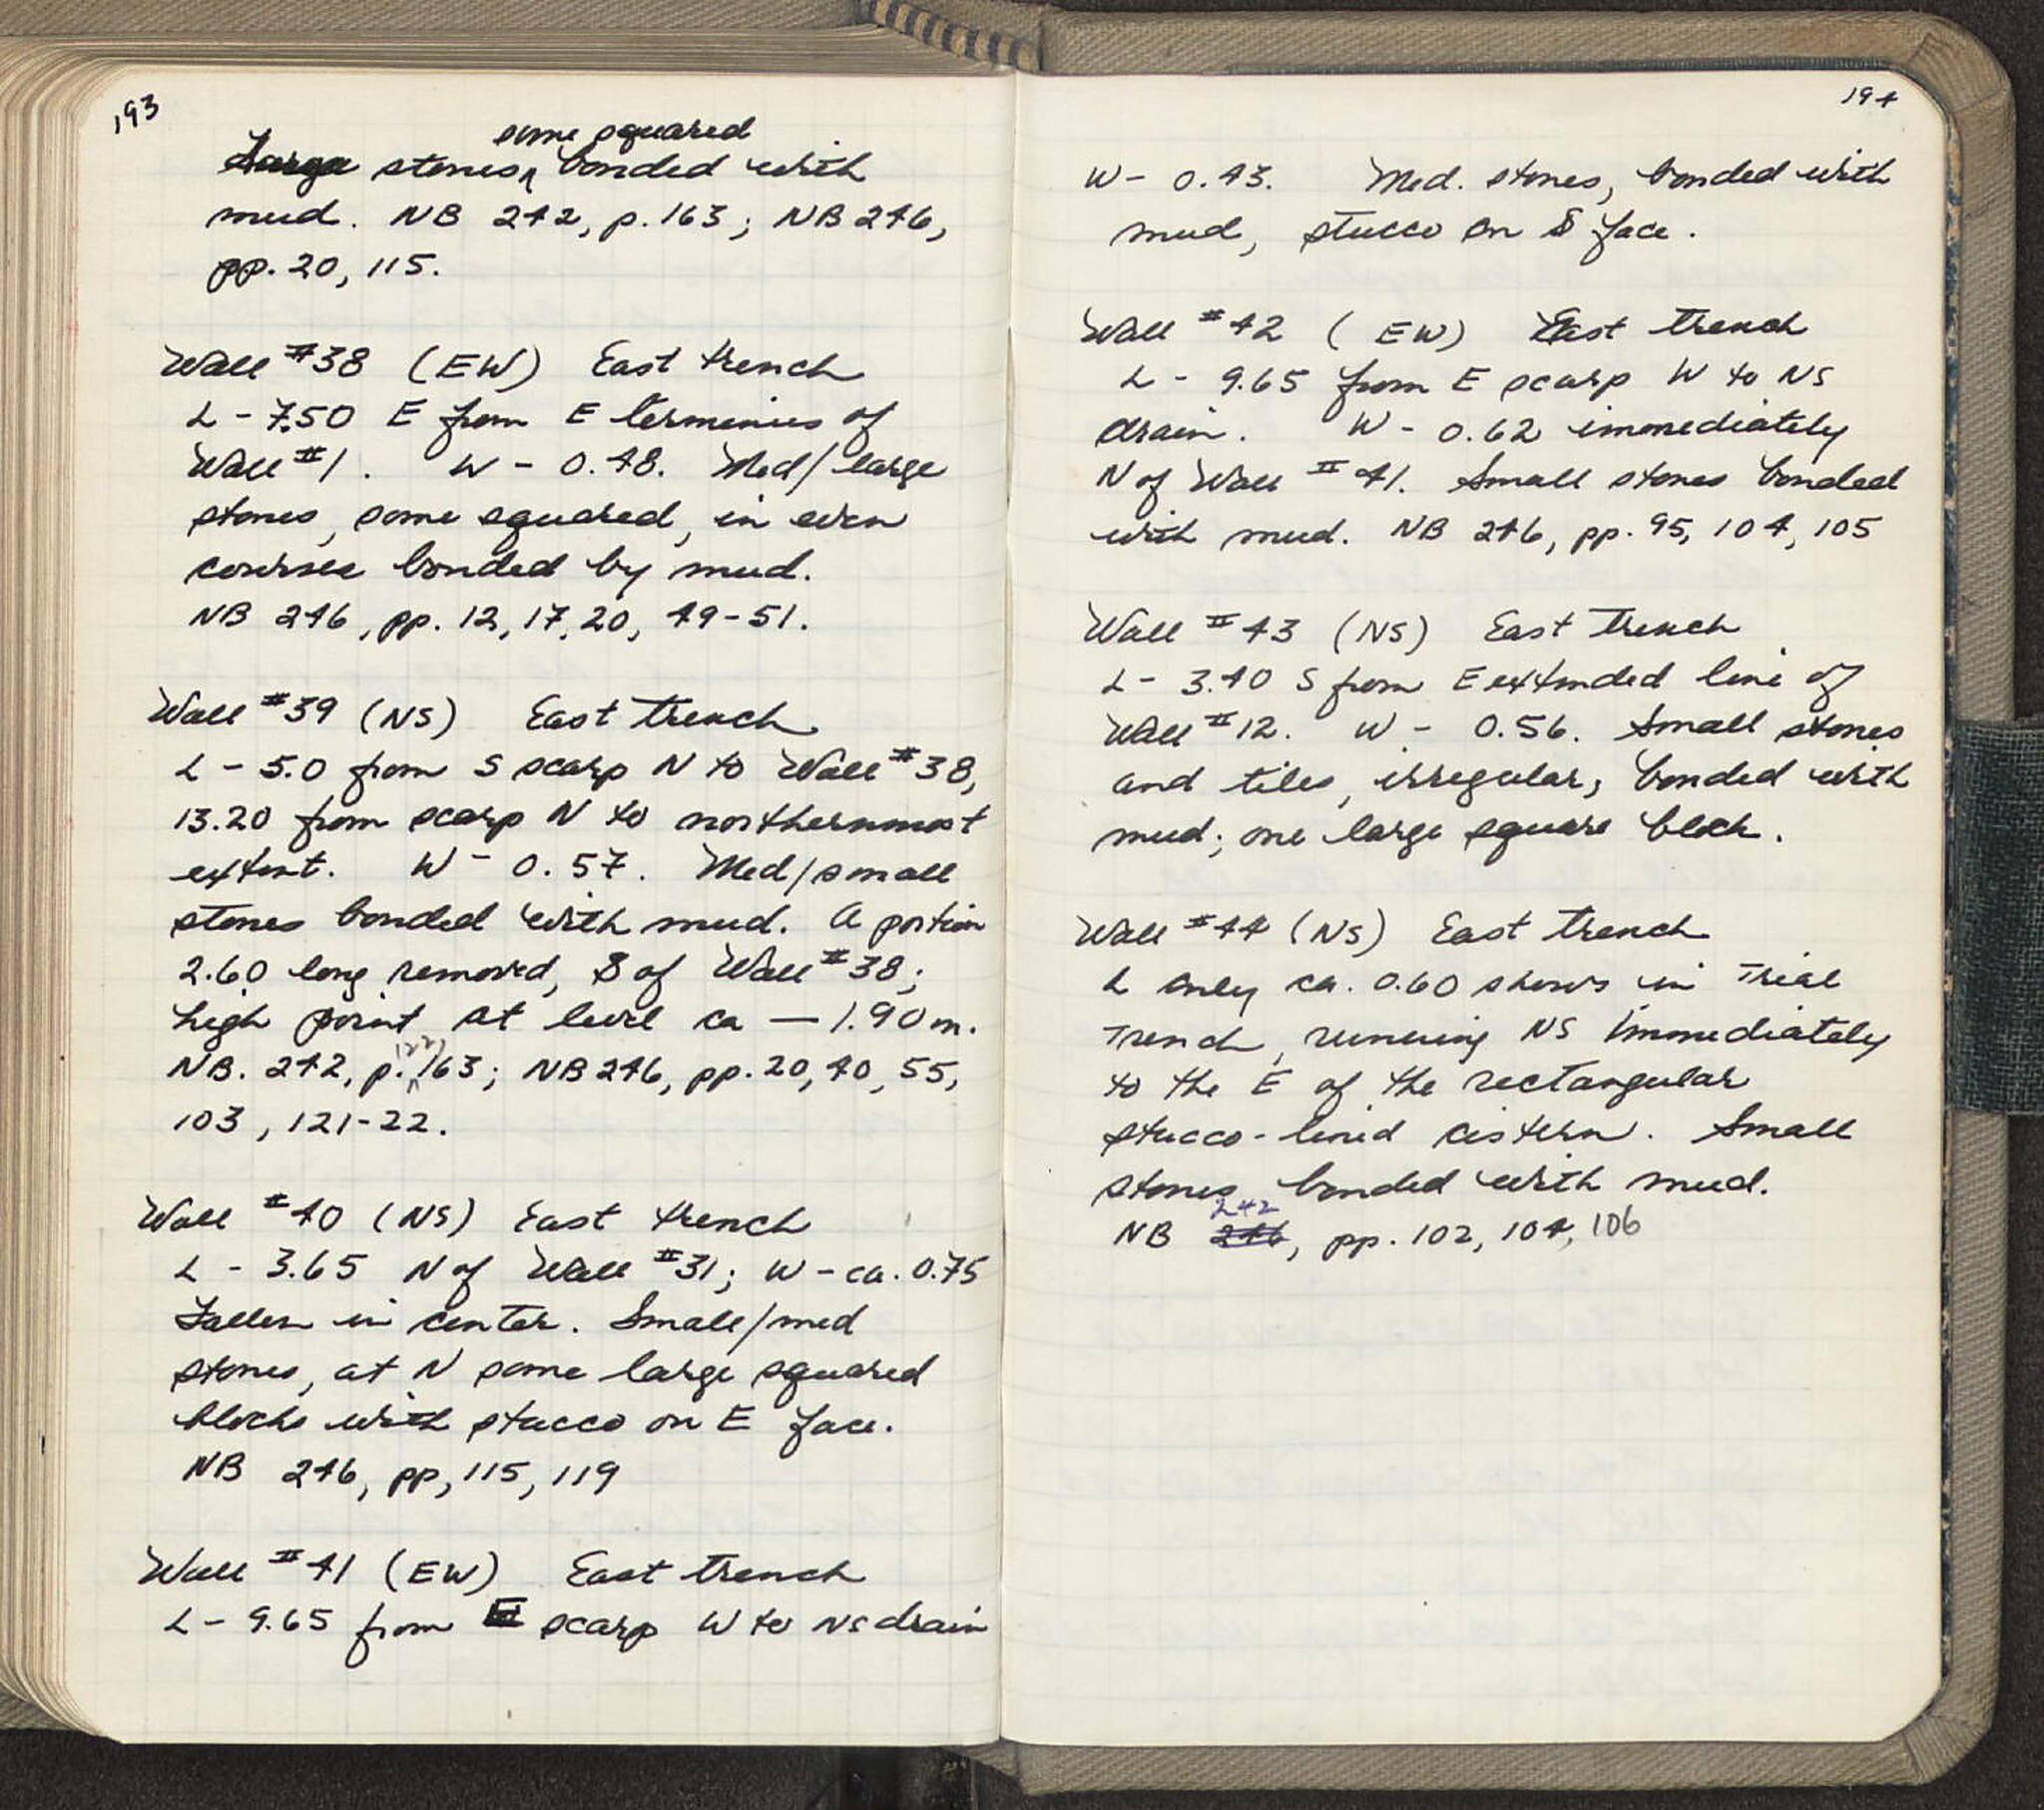 193
some squared
Large stones, bonded with
mud. NB 242, p. 163; NB 246,
pp. 20, 115.
Wall #38 (EW) East trench
L - 7.50 E from E terminus of
Wall #1. W - 0.48. Med/large
stones, some squared, in even
courses bonded by mud.
NB 246, pp. 12, 17, 20, 49-51.
Wall #39 (NS) East trench
L - 5.0 from S scarp N to Wall #38,
13.20 from scarp N to northernmost
extent. W - 0.57. Med/small
stones bonded with mud. A portion
2.60 long removed, S of Wall #38;
high point at level ca — 1.90 m.
122,
NB. 242, p. 163; NB 246, pp. 20, 40, 55,
103, 121-22.
Wall #40 (NS) East trench
L - 3.65 N of Wall #31; W - ca. 0.75
Fallen in center. Small/med
stones, at N some large squared
blocks with stucco on E face.
NB 246, pp, 115, 119
Wall #41 (EW) East trench
L - 9.65 from E scarp W to NS drain
194
W - 0.43. Med. stones, bonded with
mud, stucco on S face.
Wall #42 (EW) East trench
L - 9.65 from E scarp W to NS
drain. W - 0.62 immediately
N of Wall #41. Small stones bonded
with mud. NB 246, pp. 95, 104, 105
Wall #43 (NS) East trench
L - 3.40 S from E extended line of
Wall #12. W - 0.56. Small stones
and tiles, irregular, bonded with
mud; one large square block.
Wall #44 (NS) East trench
L only ca. 0.60 shows in Trial
Trench, running NS immediately
to the E of the rectangular
stucco-lined cistern. Small
stones bonded with mud.
242
NB 246, pp. 102, 104, 106